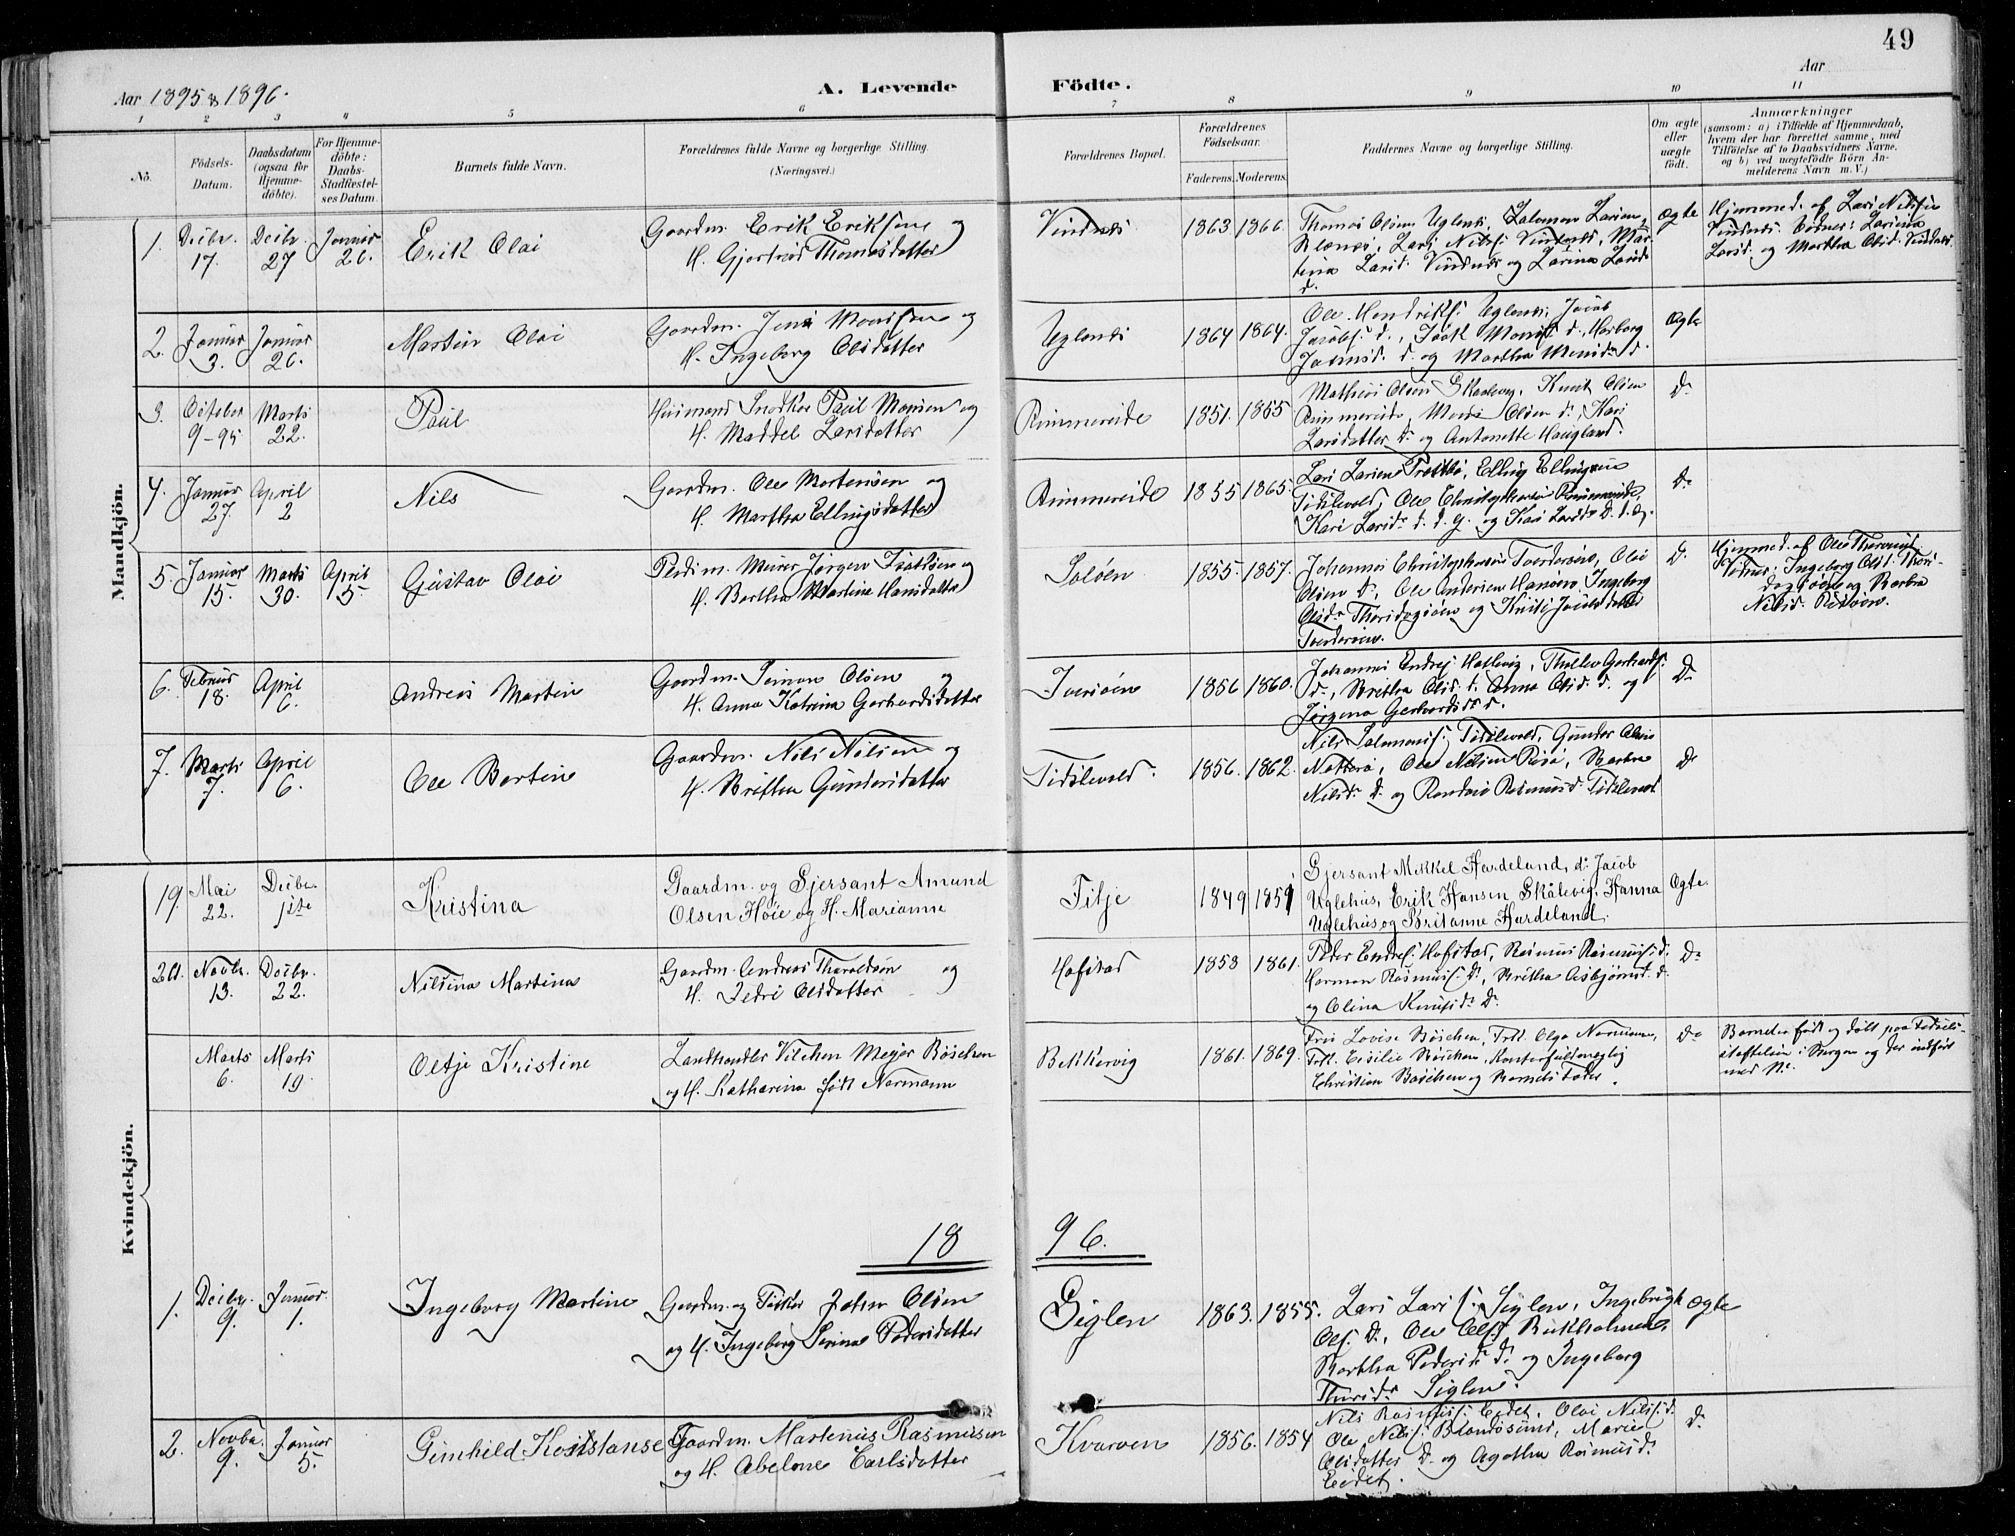 49
Aar 1895 & 1896.
A. Levende Födte.
Aar
1 2 3 4 5 6 7 8 9 10 11
No.
Födsels-Datum.
Daabsdatum (ogsaa for Hjemme-döbte).
For Hjemme-döbte: Daabs-Stadfæstel-ses Datum.
Barnets fulde Navn.
Forældrenes fulde Navne og borgerlige Stilling.
(Næringsvei.)
Forældrenes Bopæl.
Forældrenes Födselsaar.
Faderens. Moderens.
Faddernes Navne og borgerlige Stilling.
Om ægte eller uægte födt.
Anmærkninger
(saasom: a) i Tilfælde af Hjemmedaab,
hvem der har forrettet samme, med
Tilföielse af to Daabsvidners Navne,
og b) ved uægtefödte Börn An-
melderens Navn m. V.)
Mandkjön.
1. Decbr. 17. Decbr. 27 Januar 26. Erik Olai
Gaardm. Erik Eriksen og
H. Gjertrud Thomasdatter
Vindnes 1863 1866
Thomas Olsen Uglenes, Salomon Larsen
Lars Nilss. Vindnes, Mar-
tina Larsd. Vindnes og Larina Larsd.
d.
Ægte
Hjemmed. af Lars Nilsen
Vindnes. Vidner: Larina
Larsd. og Martha Olsd. Vindnes.
2. Januar 3. Januar 26. Martin Olai
Gaardm. Jens Monssen og
H. Ingeborg Olsdatter
Uglenes 1864 1864.
Ole Hendriks. Uglenes, Jacob
Jacobs. d., Isak Monss. d., Herborg
d. og Martha Monsdr. d.
Ægte
3. October 9-95 Marts 22. Paul
Husmand Snedker Paul Monsen og
H. Maddel Larsdatter
Rimmereide 1851. 1865
Mathias Olsen Skaalevig, Knut Olsen
Rimmereide, Mons Olsen d., Kari
Larsdatter d. og Antonette Haugland.
Do
4. Januar 27. April 2 Nils
Gaardm. Ole Mortensen og
H. Martha Ellingsdatter
Rimmereide 1855 1865.
Lars Larsen Trættebø, Elling Ellingsen
Tidslevold, Ole Christophersen Rimmereide,
Kari Larsdr. d. d. y. og Kari Larsdr. d. d. æ.
Do
5. Januar 15. Marts 30. April 5 Gustav Olai
Pladsm. Murer Jørgen Isaksen og
H. Bertha Martine Hansdatter
Saløen 1855 1857.
Johannes Christophersen Tverderøen, Ole
Olsen d., Ole Andersen Hanøen, Ingeborg
Olsdr. Thorsdagsøen og Knisi Jacobsdatter
Tverderøen.
D.
Hjemmed. af Ole
Vidner: Ingeborg Olsd. Thors-
dagsøen og Barbra
Nilsd. Risøen.
6. Februar 18. April 6. Andreas Martin
Gaardm. Simon Olsen og
H. Anna Katrina Gerhardsdatter
Iversøen 1856 1860.
Johannes Endres. Hatlevig, Thollev Gerhards.
d., Britha Olsd. d. Anna Olsd. d. og
Jørgena Gerhardsdr. d.
Do
7. Marts 7. April 6. Ole Bertin
Gaardm. Nils Nilsen og
H. Britha Gundersdatter
Tidslevold. 1856. 1862.
Nils Salomons. Tidslevold, Gunder Olsen
Nøtterø, Ole Nilsen Risø, Barbra
Nilsdr. d. og Randvei Rasmusd. Tidslevold.
Do
Kvindekjön.
19. Mai 22. Decbr. 1ste Kristina
Gaardm. og Gjersant Amund
Olsen Høie og H. Marianne
Fitje 1849 1859
Gjersant Mikkel Hardeland, d. Jacob
Uglehus, Erik Hansen Skålevig, Hanna
Uglehus og Britanne Hardeland.
Ægte.
20. Novbr. 13. Decbr. 22. Nilsina Martina
Gaardm. Andreas Tharaldsen og
H. Sedri Olsdatter
Hofstad 1858 1861.
Peder Endres. Hofstad, Rasmus Rasmuss. d.
Herman Rasmuss. d., Britha Asbjørnsd. d.
og Olina Knutsdr. d.
Do
Marts 6. Marts 19. Oltje Kristine
Landhandler Vilchen Meyer Böschen
og H. Katharina født Normann
Bekkervig 1861. 1869.
Fru Lovise Böschen, Frk. Olga Normann,
Frk. Cecilie Böschen, Kontorfuldmægtig
Christian Böschen og Barnets Fader.
Do
Barnet er født og døbt paa Fødsels-
stiftelsen i Bergen og der indført
med No.
18 96.
1. Decbr. 9. Januar 1. Ingeborg Martine
Gaardm. og Fisker Johan Olsen
og H. Ingeborg Serina Pedersdatter
Siglen 1863. 1855.
Lars Larss. Siglen, Ingebrigt
Ols. d., Ole Olss. Birkholmen,
Bertha Pedersdr. d. og Ingeborg
Thorsdr. Siglen.
Ægte
2. Novbr. 9. Januar 5. Gunhild Konstanse
Gaardm. Martenus Rasmusen
og H. Abelone Carlsdatter
Kvarven 1856. 1854
Nils Rasmuss. Eidet, Olai Nilss. d.
Ole Nilss. Brandøsund, Marie
Olsdatter d. og Agatha Rasmusd.
Eidet.
D.